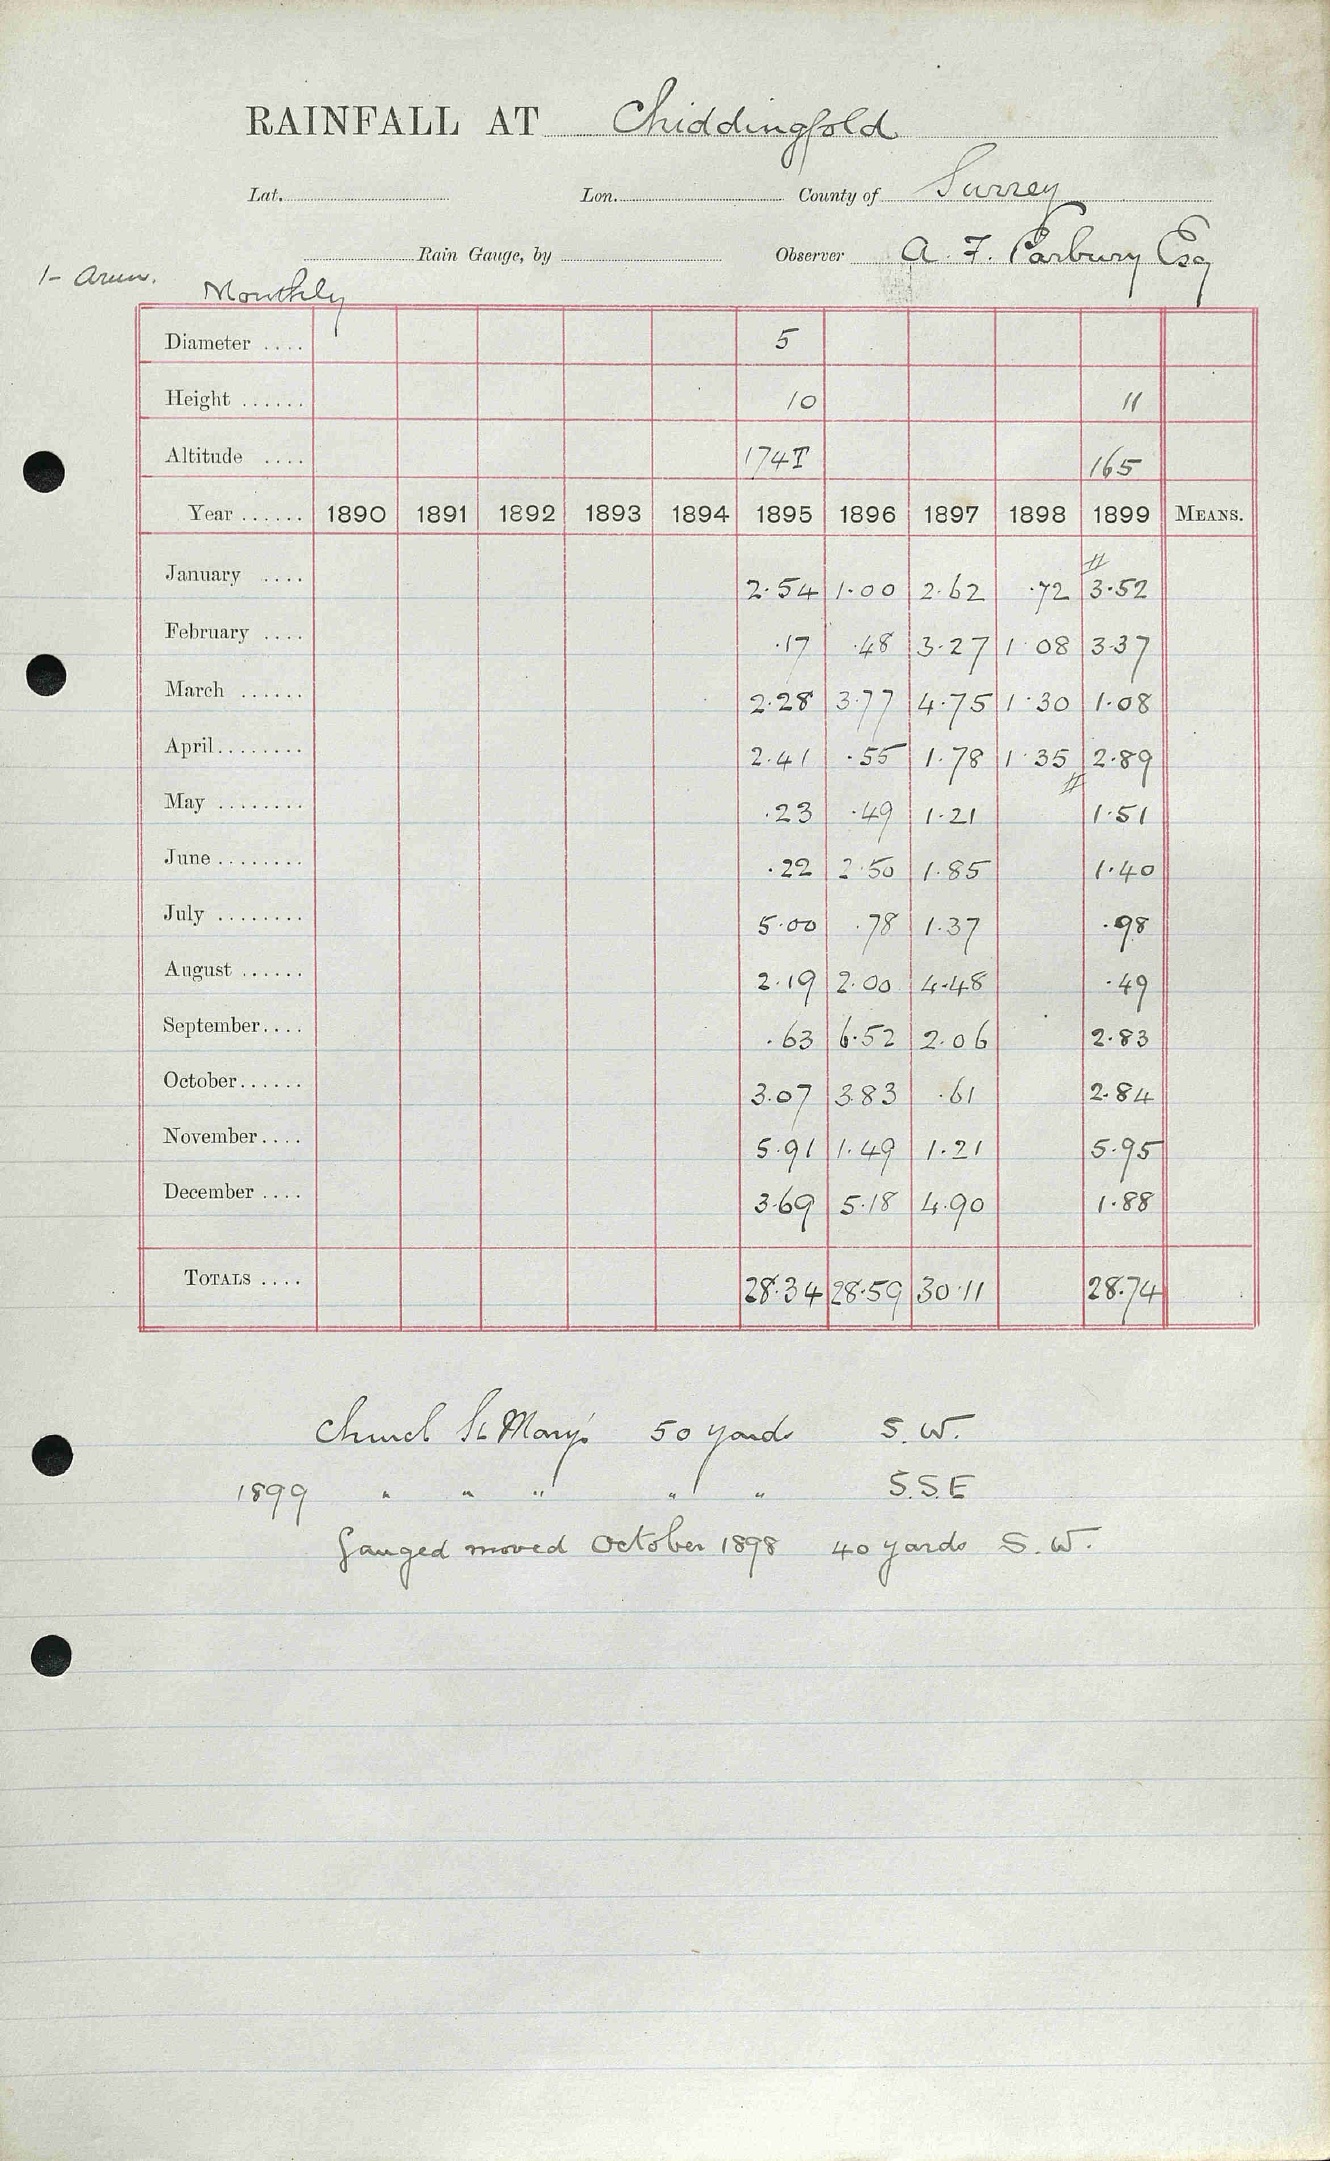 RAINFALL AT Chiddingfold
Lat. Lon. County of Surrey
Rain Gauge, by Observer A. F. Parbury Esq
1- Arun.
Monthly
Diameter .... 5
Height ...... 10 11
Altitude .... 174T 165
Year ...... 1890 1891 1892 1893 1894 1895 1896 1897 1898 1899 MEANS.
January .... 2.54 1.00 2.62 .72 # 3.52
February .... .17 .48 3.27 1.08 3.37
March ...... 2.28 3.77 4.75 1.30 1.08
April ........ 2.41 .55 1.78 1.35 2.89
May ........ .23 .49 1.21 # 1.51
June ........ .22 2.50 1.85 1.40
July ........ 5.00 .78 1.37 .98
August ...... 2.19 2.00 4.48 .49
September .... .63 6.52 2.06 2.83
October ...... 3.07 3.83 .61 2.84
November .... 5.91 1.49 1.21 5.95
December .... 3.69 5.18 4.90 1.88
TOTALS .... 28.34 28.59 30.11 28.74
Church St Mary's 50 yards S.W.
1899 " " " " " S.S.E
Gauged moved October 1898 40 yards S.W.